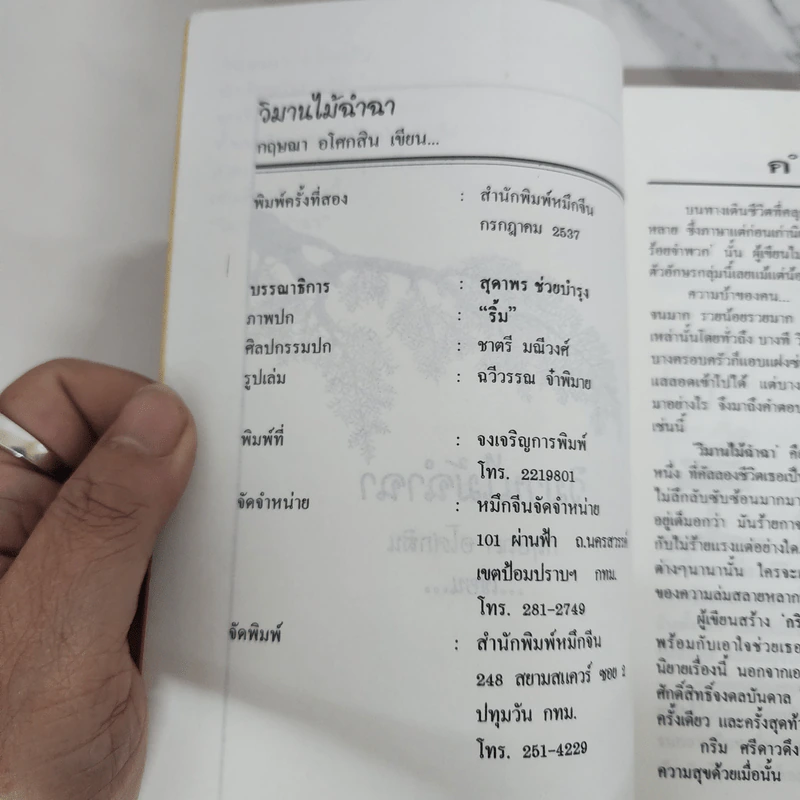 วิมานไม้ฉำฉา
กฤษณา อโศกสิน เขียน...
พิมพ์ครั้งที่สอง : สำนักพิมพ์หมึกจีน
กรกฎาคม 2537
บรรณาธิการ : สุดาพร ช่วยบำรุง
ภาพปก : “ริ้ม”
ศิลปกรรมปก : ชาตรี มณีวงศ์
รูปเล่ม : ฉวีวรรณ จำพิมาย
พิมพ์ที่ : จงเจริญการพิมพ์
โทร. 2219801
จัดจำหน่าย : หมึกจีนจัดจำหน่าย
101 ผ่านฟ้า ถ.นครสวรรค์
เขตป้อมปราบฯ กทม.
โทร. 281-2749
จัดพิมพ์ : สำนักพิมพ์หมึกจีน
248 สยามสแควร์ ซอย 2
ปทุมวัน กทม.
โทร. 251-4229
บนทางเดินชีวิตที่คลุ
หลาย ซึ่งภาษาแต่ก่อนเก่านิ
ร้อยจำพวก' นั้น ผู้เขียนไม
ตัวอักษรกลุ่มนี้เลยแม้แต่น้อ
ความบ้าของคน...
จนมาก รวยน้อยรวยมาก
เหล่านั้นโดยทั่วถึง บางที
บางครอบครัวก็แอบแฝงซ่
แลลอดเข้าไปได้ แต่บาง
มาอย่างไร จึงมาถึงคำตอบ
เช่นนี้
'วิมานไม้ฉำฉา' คือ
หนึ่ง ที่คัลลองชีวิตเธอเป็
ไม่ลึกลับซับซ้อนมากมา
อยู่เต็มอกว่า มันร้ายกา
กับไม่ร้ายแรงแต่อย่างใด
ต่างๆนานานั้น ใครจะ
ของความล่มสลายหลาก
ผู้เขียนสร้าง 'กริ
พร้อมกับเอาใจช่วยเธอ
นิยายเรื่องนี้ นอกจากเอ
ศักดิ์สิทธิ์จงดลบันดาล
ครั้งเดียว และครั้งสุดท้า
กริม ศรีดาวดึง
ความสุขด้วยเมื่อนั้น